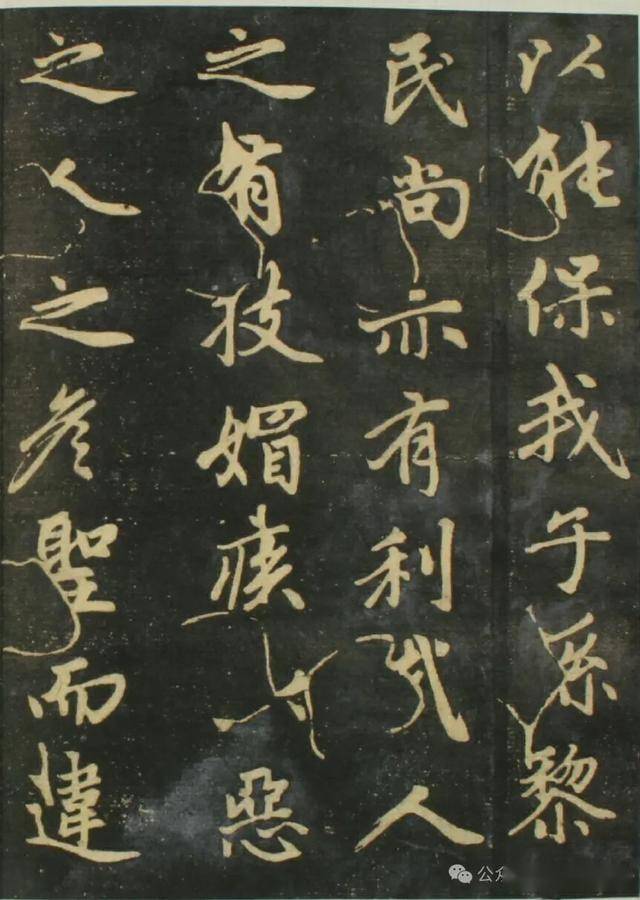 以能保我子孫黎
民尚亦有利哉人
之有技媢疾以惡
之人之彦聖而違
公众